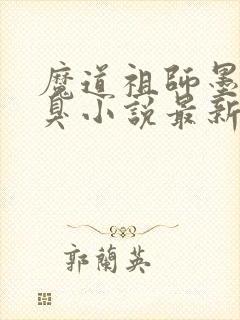 魔道祖師墨
臭小說最新
郭蘭英